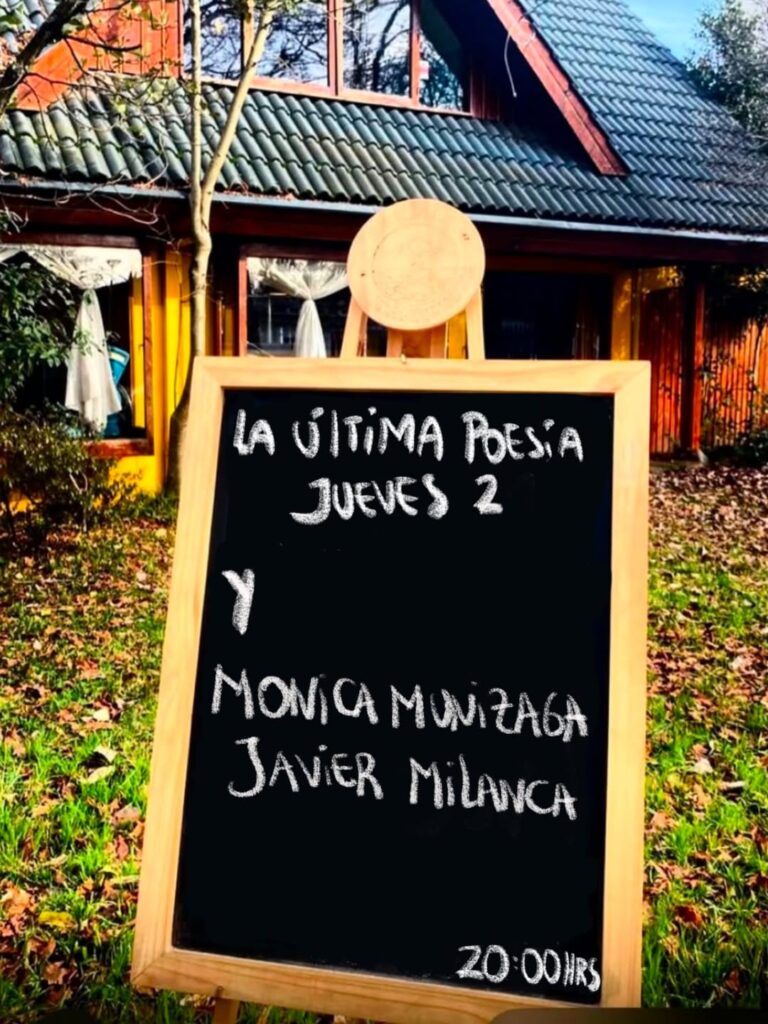 LA ÚLTIMA POESIA
JUEVES 2
Y
MONICA MUNIZAGA
JAVIER MILANCA
20:00HRS